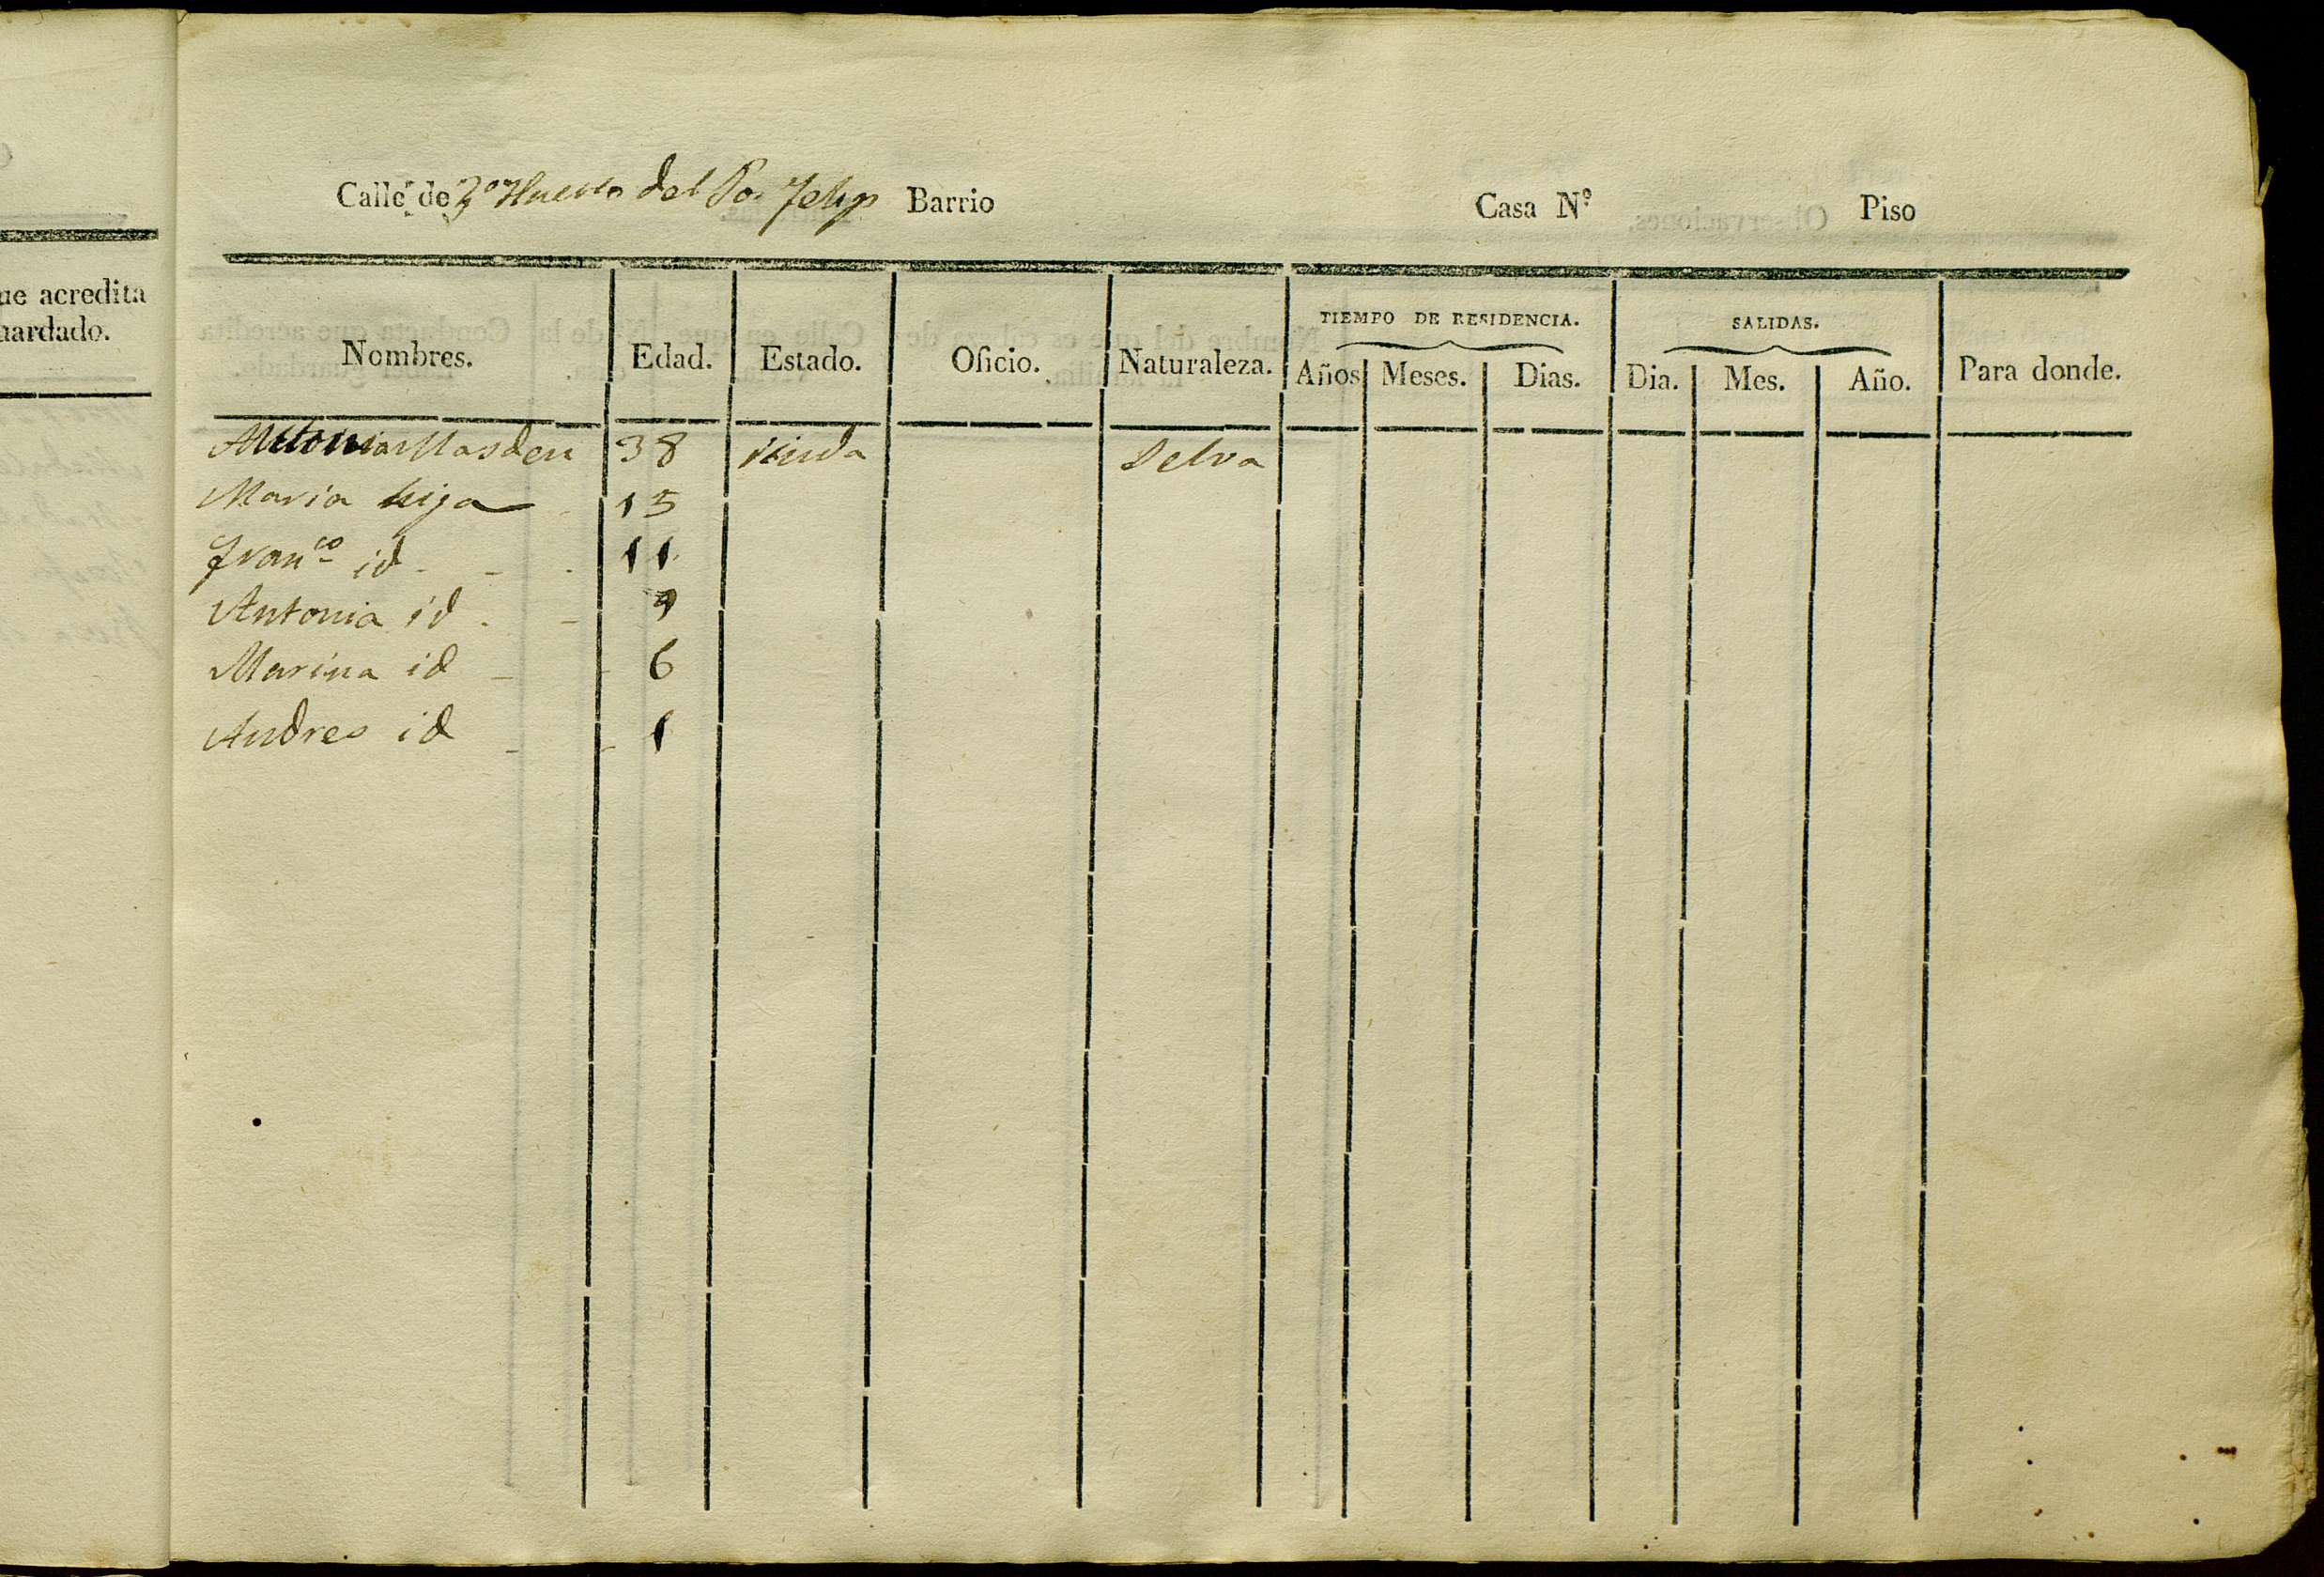 ue acredita
uardado.
Calle de 3º Huerto del Po. Felip Barrio Casa Nº Piso
Nombres. Edad. Estado. Oficio. Naturaleza. TIEMPO DE RESIDENCIA. Años Meses. Dias. SALIDAS. Dia. Mes. Año. Para donde.
Antonia Masdeu 38 Viuda Selva
Maria hija 15
Franco id 11
Antonia id 9
Marina id 6
Andres id 1